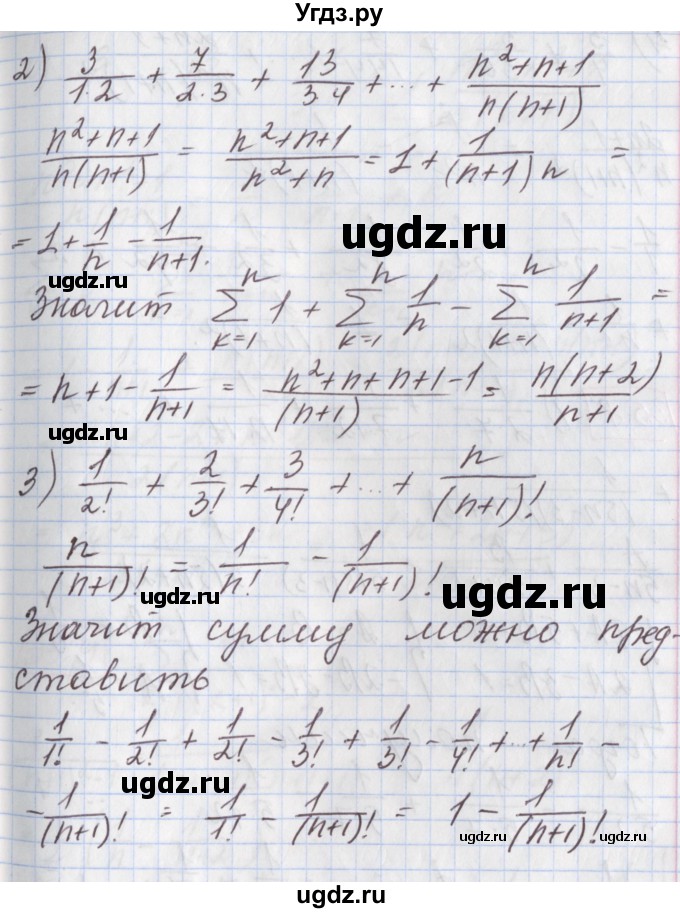 Угдз.ру
2) 3/(1·2) + 7/(2·3) + 13/(3 4) + ... + (n²+n+1)/(n(n+1))
(n²+n+1)/(n(n+1)) = (n²+n+1)/(n²+n) = 1 + 1/((n+1)n) =
ugdz.ru
= 1 + 1/n - 1/(n+1).
ugdz.ru
Значит ∑_{k=1}^{n} 1 + ∑_{k=1}^{n} 1/n - ∑_{k=1}^{n} 1/(n+1) =
= n+1 - 1/(n+1) = (n²+n+n+1-1)/(n+1) = n(n+2)/(n+1)
ugdz.ru
3) 1/2! + 2/3! + 3/4! + ... + n/(n+1)!
n/(n+1)! = 1/n! - 1/(n+1)!
ugdz.ru
ugdz.ru
Значит сумму можно пред-
ставить
1/1! - 1/2! + 1/2! - 1/3! + 1/3! - 1/4! + ... + 1/n! -
ugdz.ru
- 1/(n+1)! = 1/1! - 1/(n+1)! = 1 - 1/(n+1)!
ugdz.ru
ugdz.ru
ugdz.ru